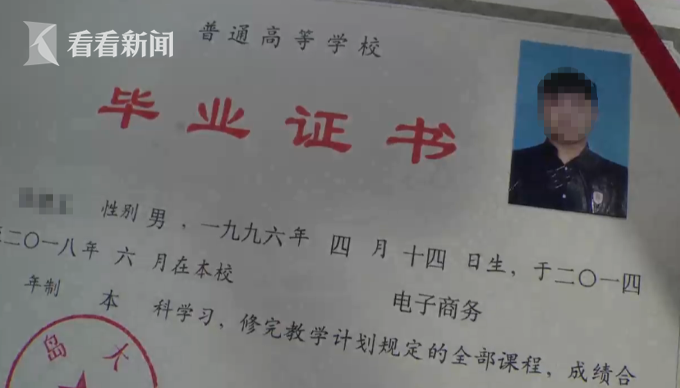 看看新闻
普通高等学校
毕业证书
性别 男，一九九六年 四 月 十四 日生，于二〇一四
至二〇一八年 六 月在本校 电子商务
年制 本 科学习，修完教学计划规定的全部课程，成绩合
岛 大